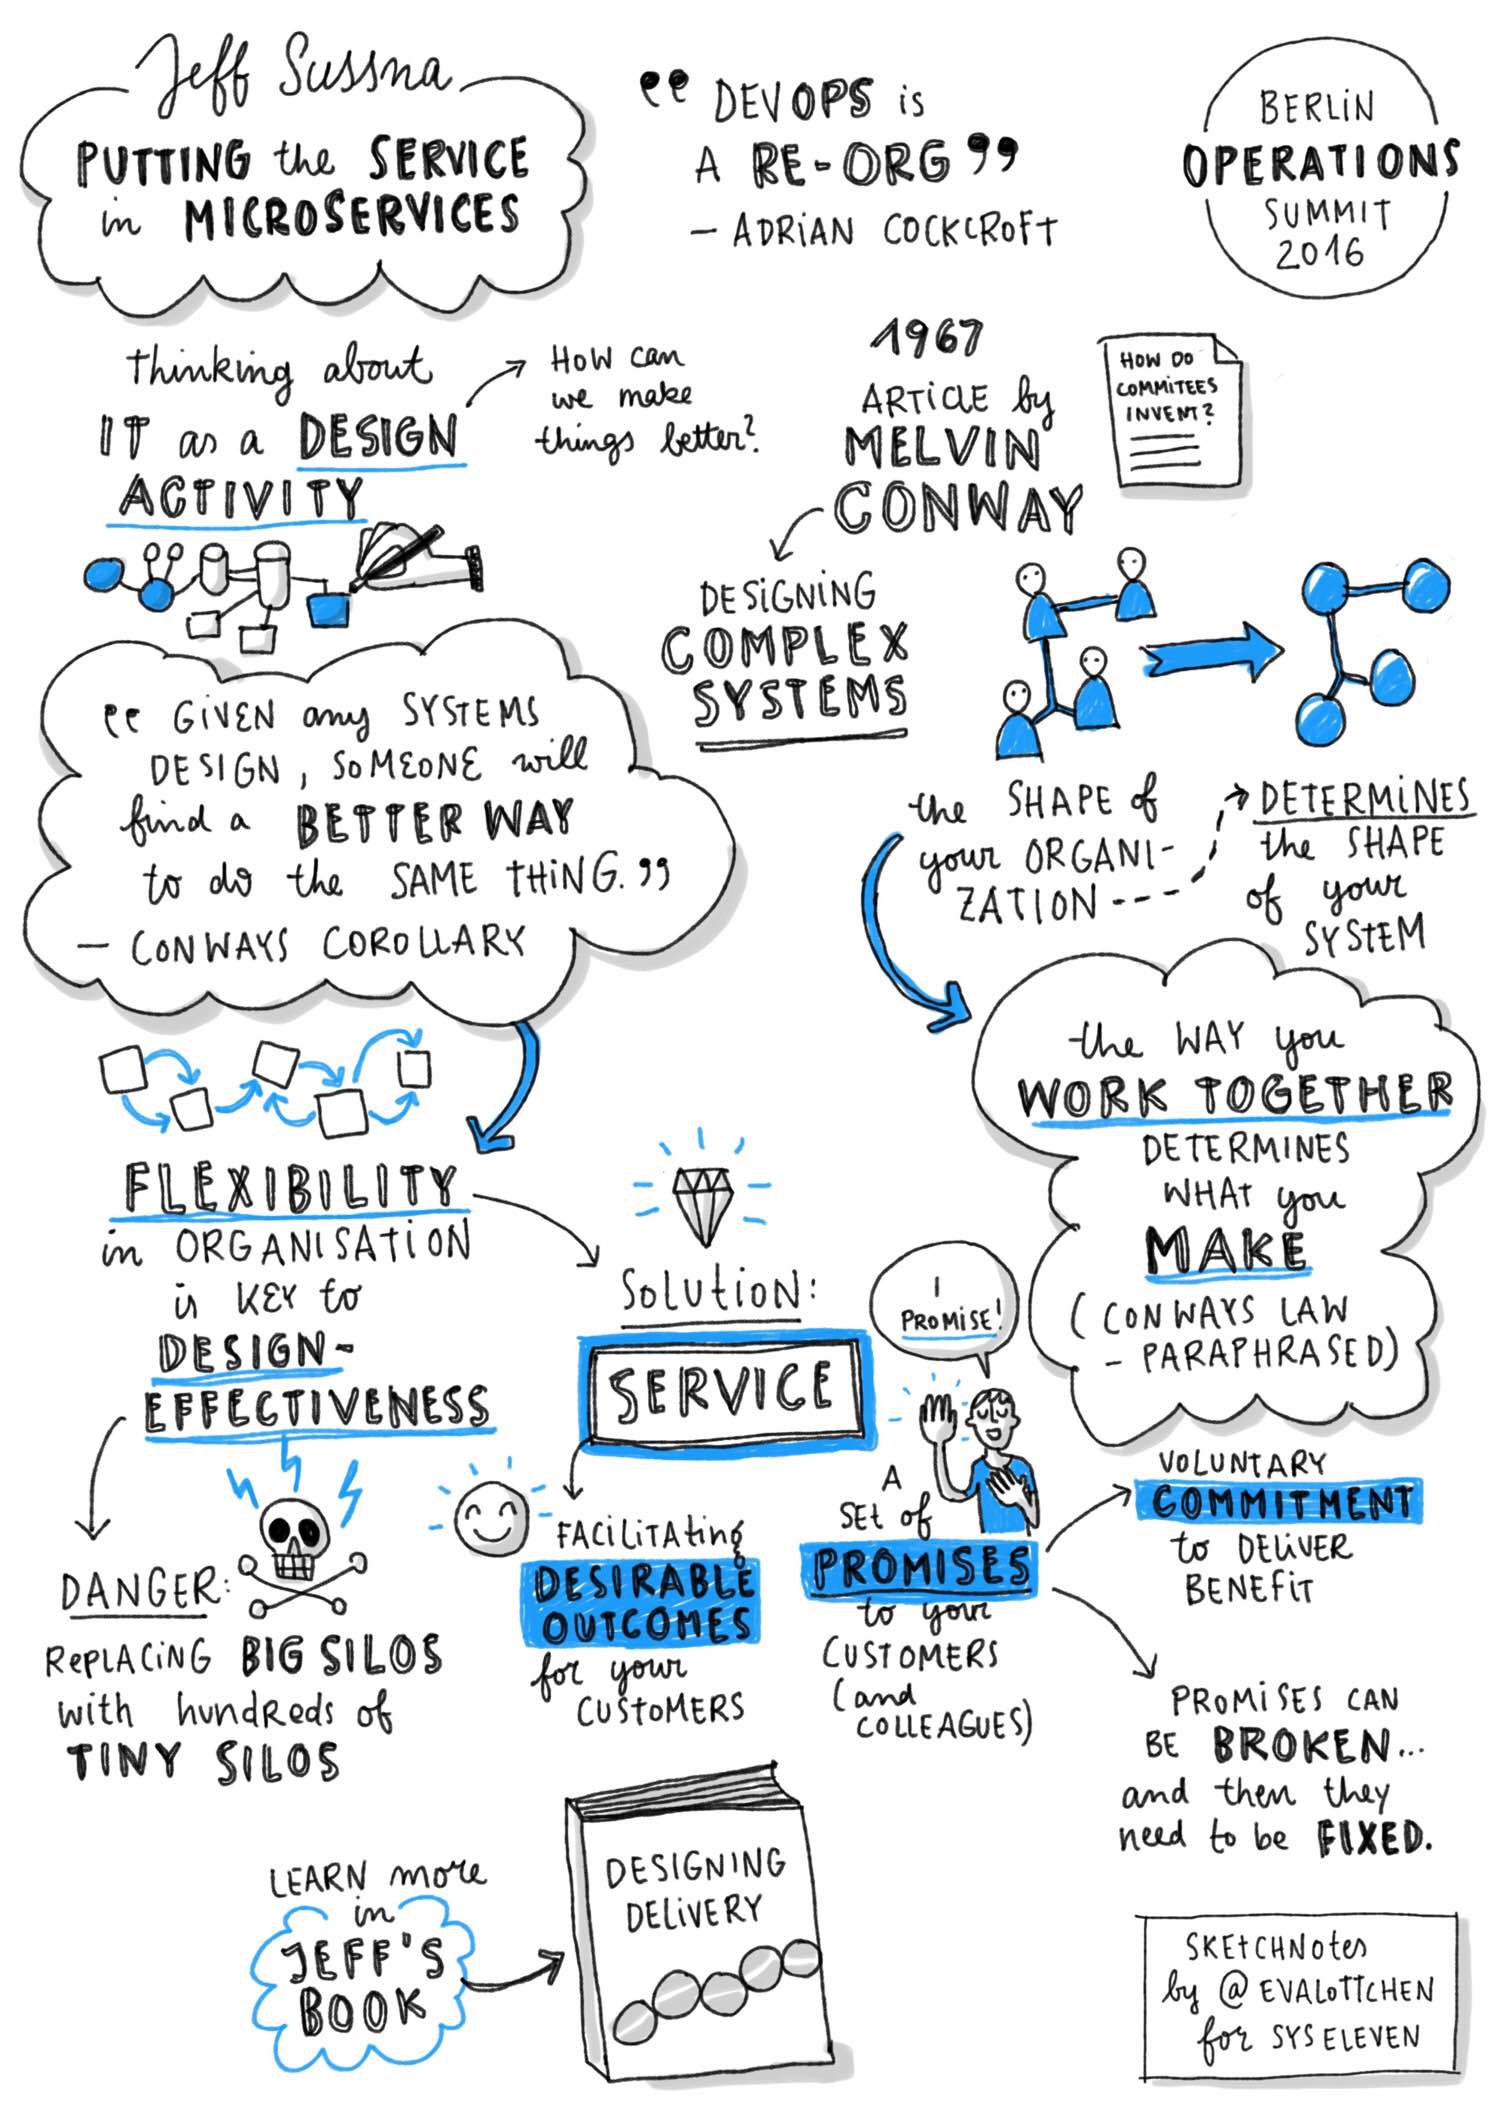 Jeff Sussna
PUTTING the SERVICE
in MICROSERVICES
"DEVOPS is
A RE-ORG"
- ADRIAN COCKCROFT
BERLIN
OPERATIONS
SUMMIT
2016
thinking about
IT as a DESIGN
ACTIVITY
HOW can
we make
things better?
1967
ARTICLE by
MELVIN
CONWAY
HOW DO
COMMITEES
INVENT?
DESIGNING
COMPLEX
SYSTEMS
the SHAPE of
your ORGANI-
ZATION
DETERMINES
the SHAPE
of your
SYSTEM
"GIVEN any SYSTEMS
DESIGN, SOMEONE will
find a BETTER WAY
to do the SAME THING."
- CONWAYS COROLLARY
the WAY you
WORK TOGETHER
DETERMINES
WHAT you
MAKE
(CONWAYS LAW
- PARAPHRASED)
FLEXIBILITY
in ORGANISATION
is KEY to
DESIGN-
EFFECTIVENESS
SOLUTION:
SERVICE
I
PROMISE!
DANGER:
REPLACING BIG SILOS
with hundreds of
TINY SILOS
FACILITAting
DESIRABLE
OUTCOMES
for your
CUSTOMERS
A
SEt of
PROMISES
to your
CUSTOMERS
(and
COLLEAGUES)
VOLUNTARY
COMMITMENT
to DELIVER
BENEFIT
PROMISES CAN
BE BROKEN...
and then they
need to be FIXED.
LEARN more
in
JEFF'S
BOOK
DESIGNING
DELIVERY
SKEtCHNOtes
by @EVALOTTCHEN
for SYSELEVEN